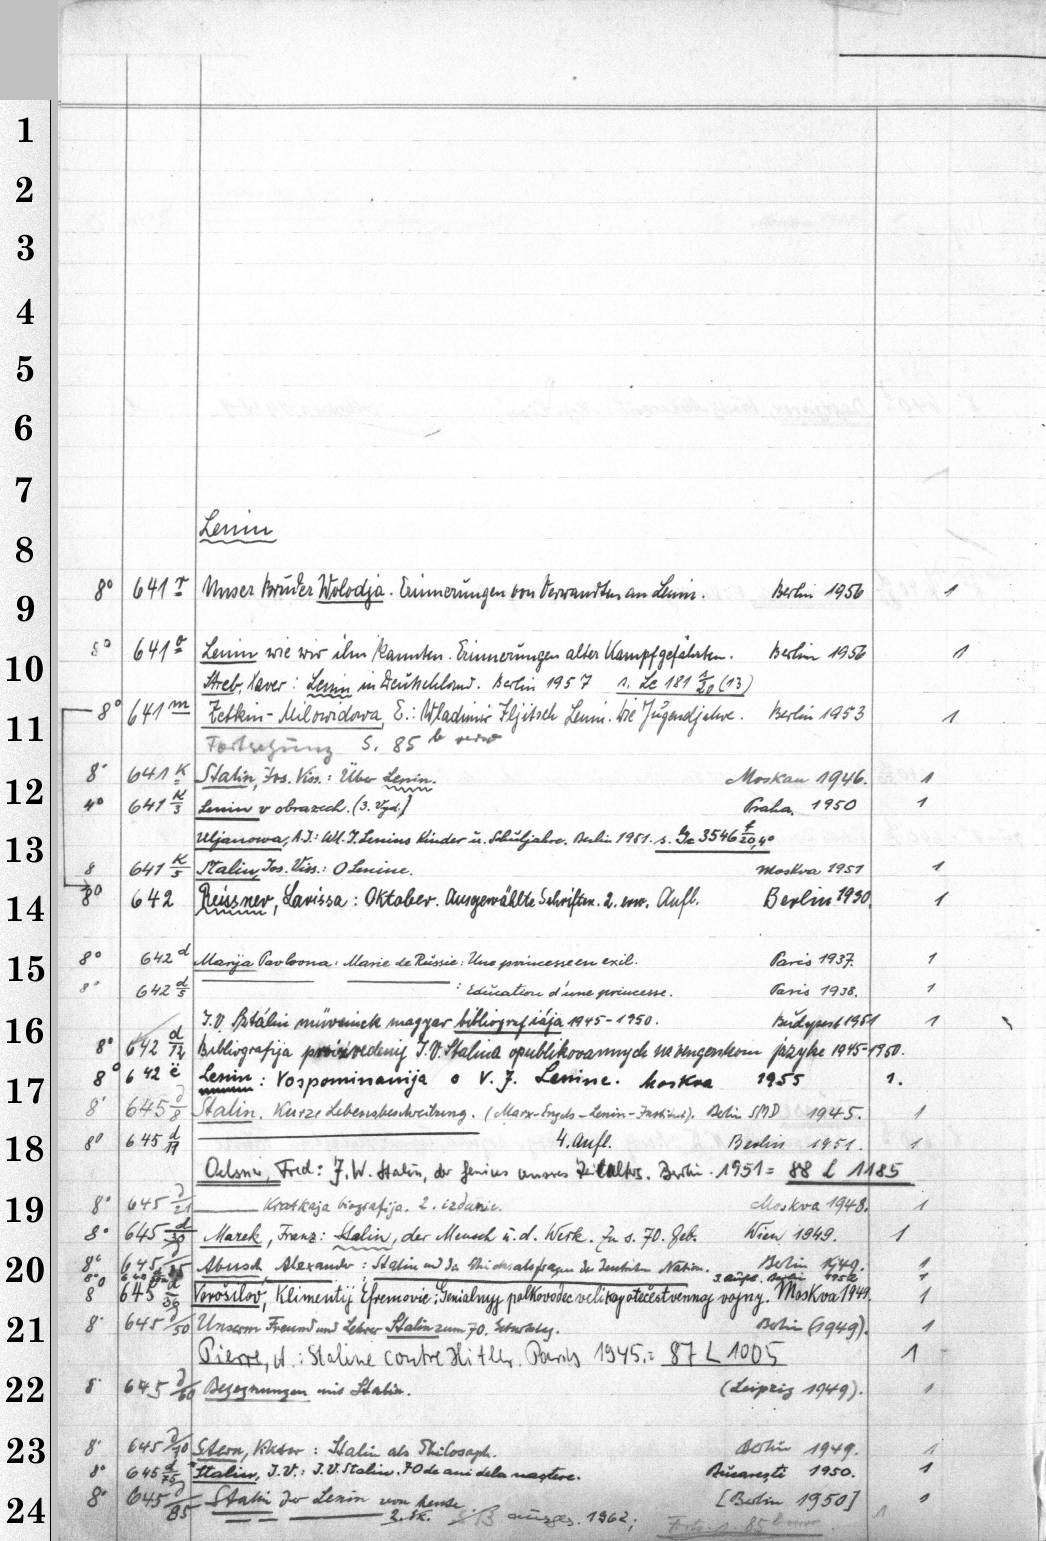 1
2
3
4
5
6
7
Lenin
8
8° 641 r Unser Bruder Wolodja. Erinnerungen von Verwandten an Lenin. Berlin 1956 1
9
8° 641 o Lenin wie wir ihn kannten. Erinnerungen alter Kampfgefährten. Berlin 1956 1
10
Streb, Xaver: Lenin in Deutschland. Berlin 1957 s. Lc 181 (13)
8° 641 m Zetkin-Milowidowa, E.: Wladimir Iljitsch Lenin. Die Jugendjahre. Berlin 1953 1
11
Fortsetzung S. 85 b verso
8° 641 K Stalin, Jos. Viss.: Über Lenin. Moskau 1946. 1
12
4° 641 K/3 Lenin v obrazech. (3. Vyd.) Praha, 1950 1
Uljanowa, A.I.: W. I. Lenins Kinder u. Schuljahre. Berlin 1951. s. 3546 20, 4°
13
8 641 K/5 Stalin, Jos. Viss.: O Lenine. Moskva 1951 1
8° 642 Reissner, Larissa: Oktober. Ausgewählte Schriften. 2. erw. Aufl. Berlin 1930. 1
14
8° 642 d Marija Pavlovna: Marie de Russie: Une princesse en exil. Paris 1937. 1
15
8° 642 d/5 : Education d'une princesse. Paris 1938. 1
I.V. Sztálin müveinek magyar bibliografiája 1945-1950. Budapest 1951 1
16
8° 642 d/12 Bibliografija proizvedenij I.V. Stalina opublikovannych na vengerskom jazyke 1945-1950.
8° 642 e Lenin: Vospominanija o V. I. Lenine. Moskva 1955 1.
17
8° 645 d/8 Stalin. Kurze Lebensbeschreibung. (Marx-Engels-Lenin-Institut). Berlin SMD 1945. 1
8° 645 d/19 4. Aufl. Berlin 1951. 1
18
Oelsner, Fred: J. W. Stalin, der Genius unsres Zeitalters. Berlin. 1951 = 88 L 1185
8° 645 d/21 Kratkaja biografija. 2. izdanie. Moskva 1948. 1
19
8° 645 d/30 Marek, Franz: Stalin, der Mensch u. d. Werk. Zu s. 70. Geb. Wien 1949. 1
8° 645 d/35 Abusch Alexander: Stalin und die Schicksalsfragen der deutschen Nation. Berlin 1949. 1
20
8° 3. Aufl. Berlin 1952 1
8 645 d/36 Vorošilov, Klimentij Efremovič: Genialnyj polkovodec velikoj otečestvennoj vojny. Moskva 1949. 1
8° 645 d/50 Unserm Freund und Lehrer Stalin zum 70. Geburtstag. Berlin (1949). 1
21
Pierre, A.: Staline contre Hitler. Paris 1945. = 87 L 1005 1
22
8° 645 d/60 Begegnungen mit Stalin. (Leipzig 1949). 1
8° 645 d/70 Stern, Viktor: Stalin als Philosoph. Berlin 1949. 1
23
8° 645 d/75 Stalin, I.V.: I.V. Stalin. 70 de ani dela naştere. Bucareşti 1950. 1
8° 645 d/85 Stalin der Lenin von heute [Berlin 1950] 1
24
2. Ex. SB ausges. 1962; 1
Forts. s. 85 b verso